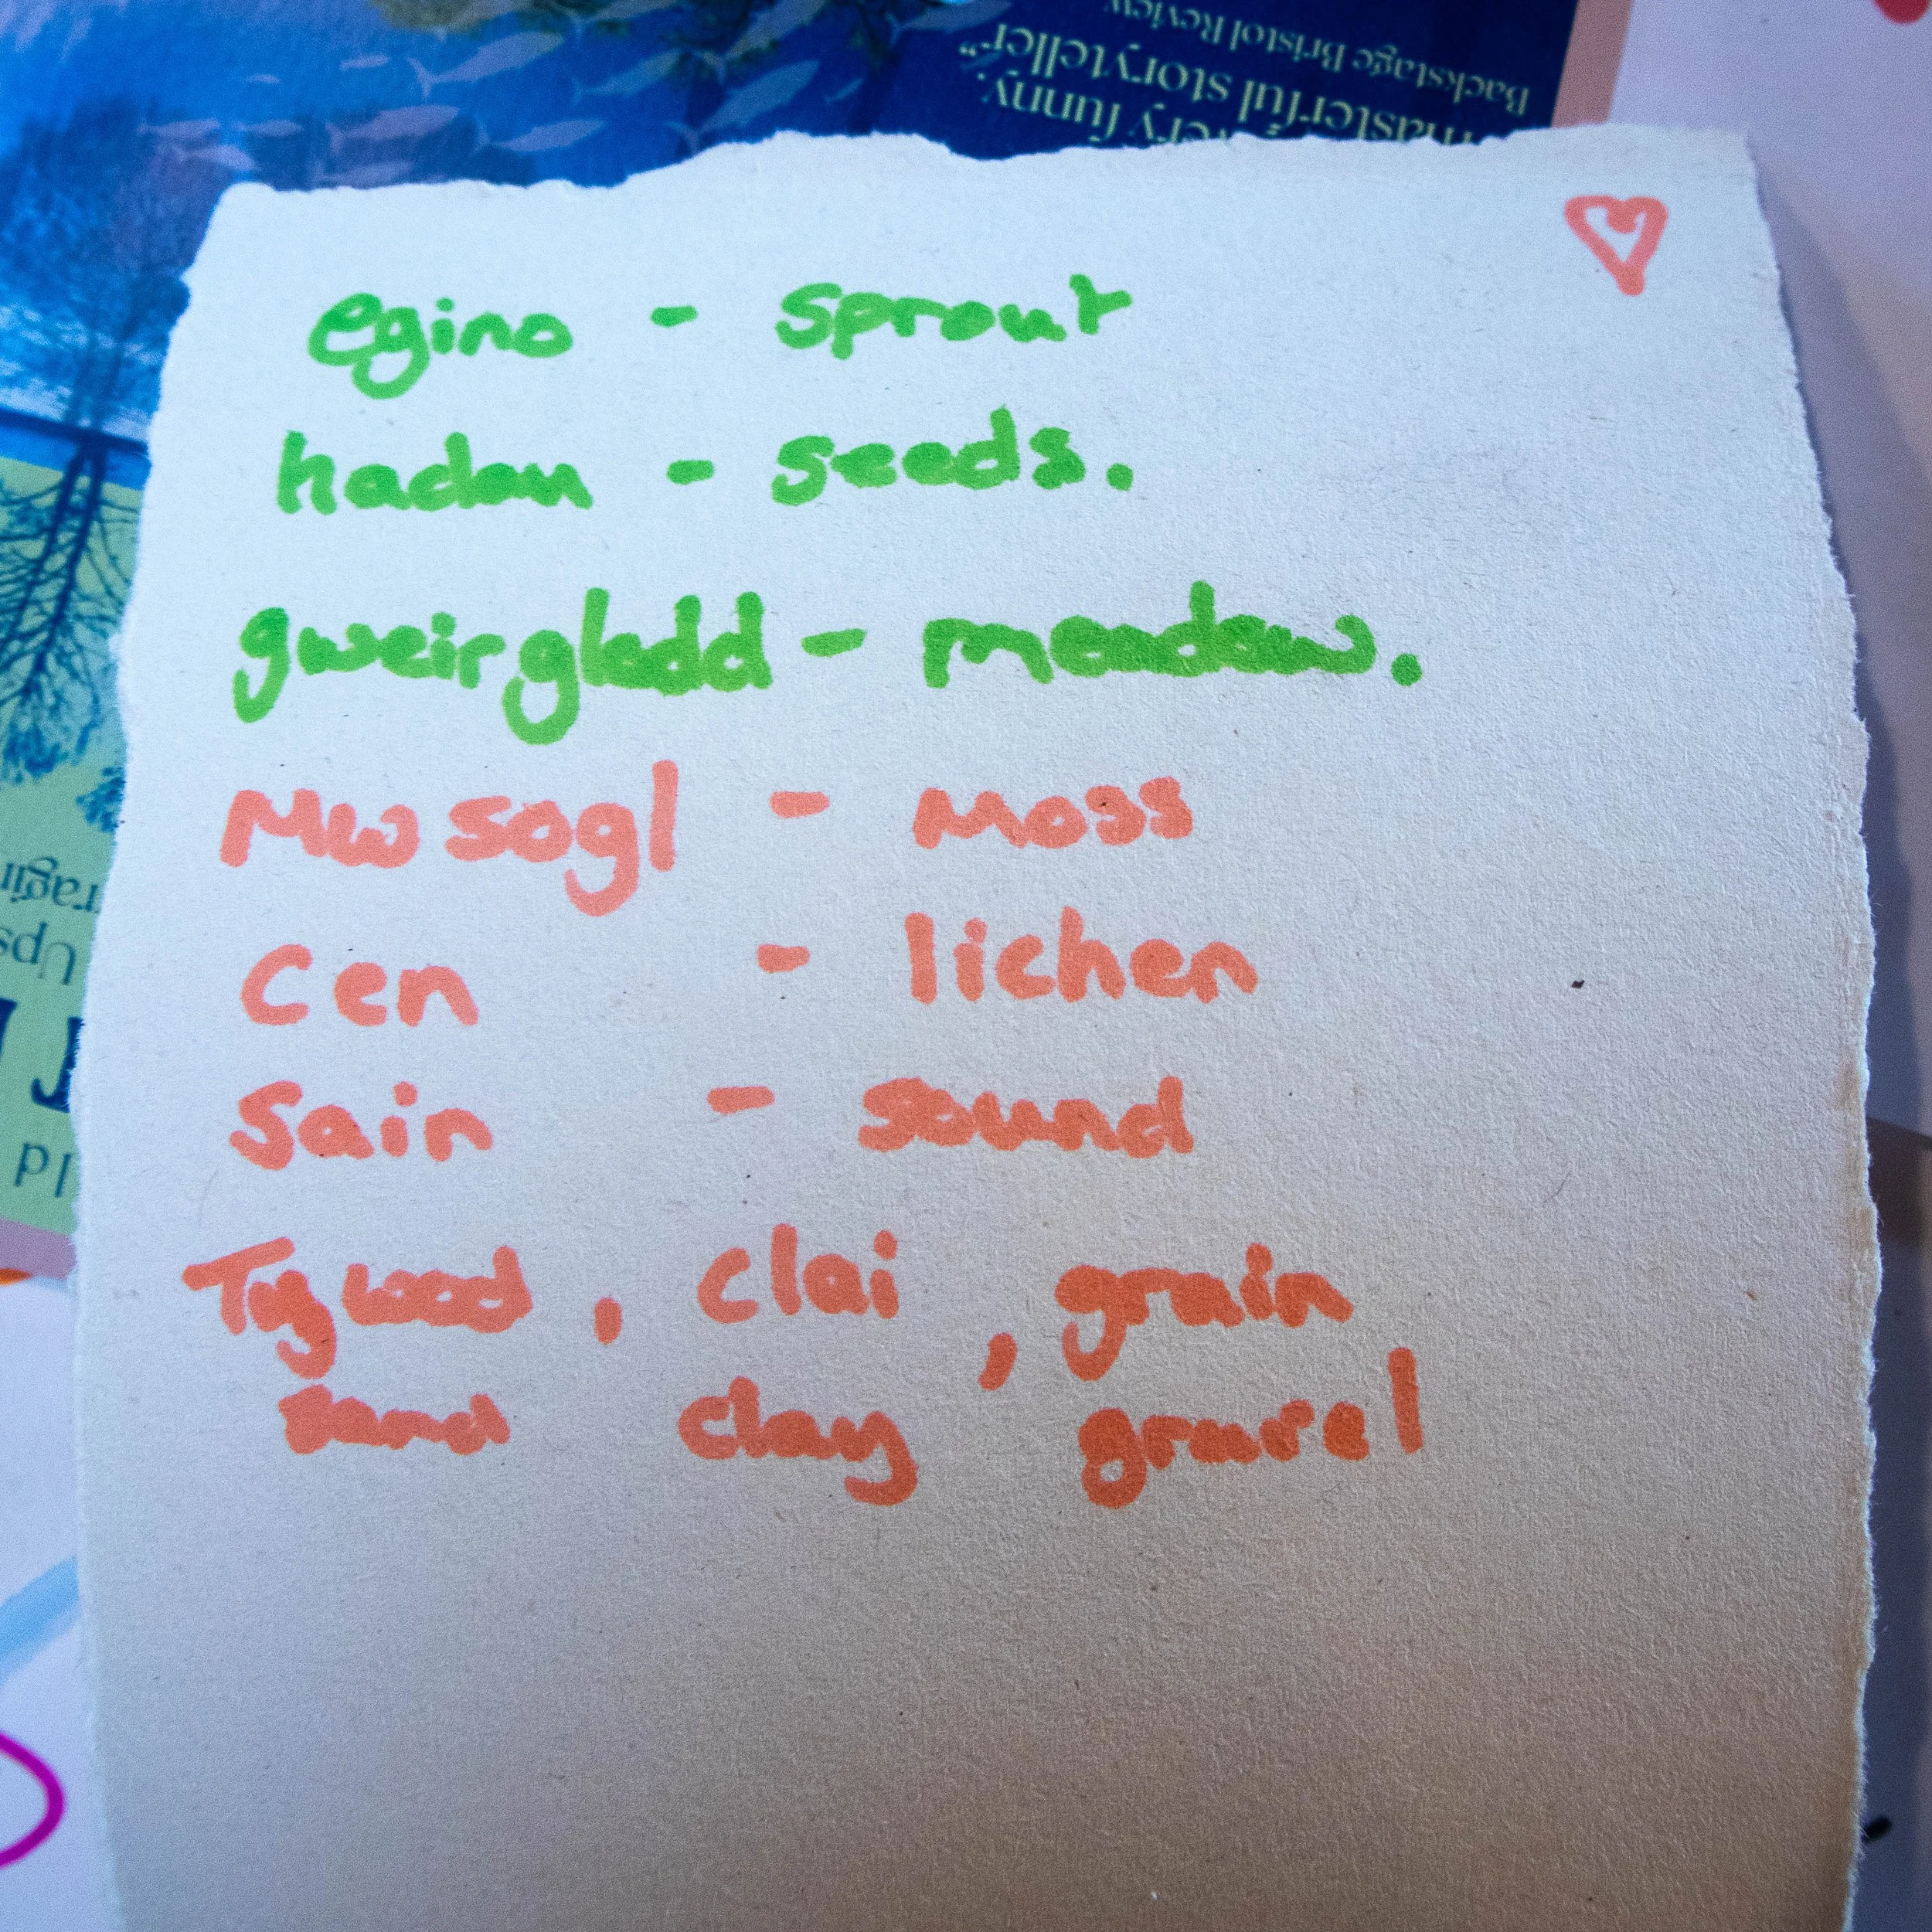 Backstage Bristol Review
masterful storyteller"
very funny,
egino - sprout
hadau - seeds.
gweirglodd - meadow.
Mwsogl - moss
Cen - lichen
Sain - sound
Tywod, clai, grain
sand clay gravel